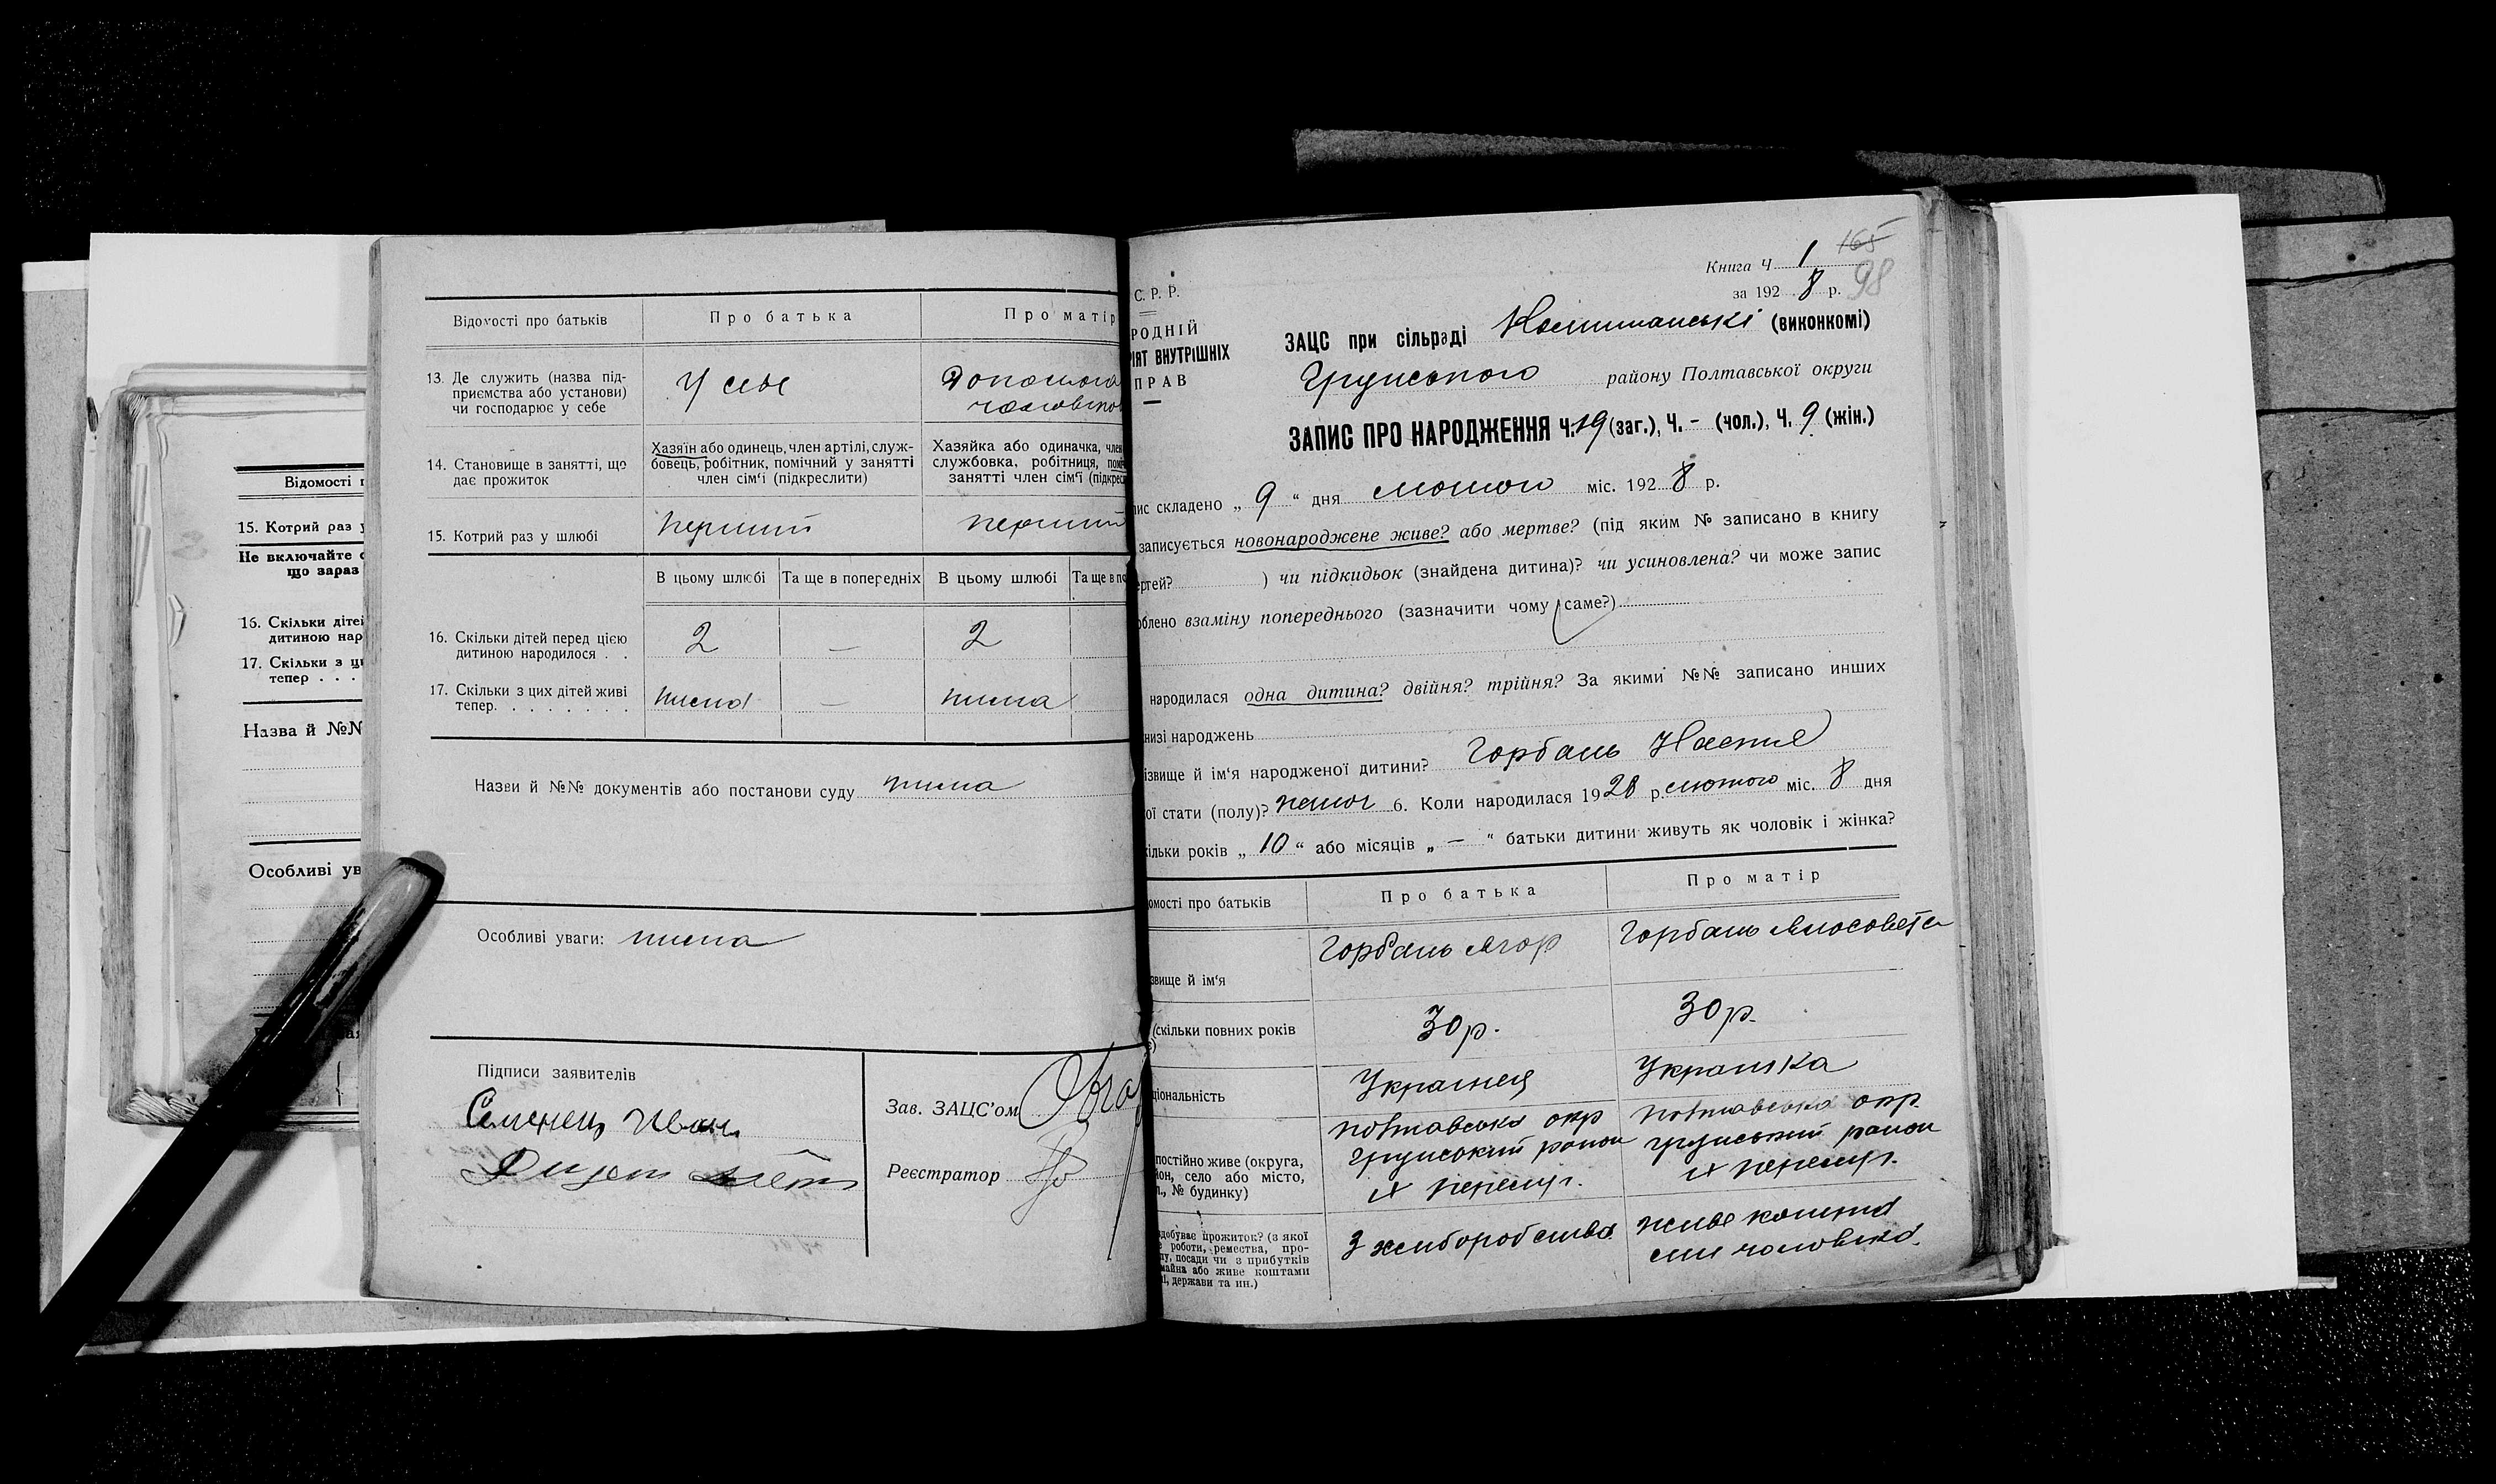 Відомості п
15. Котрий раз у
Не включайте
що зараз
16. Скільки діте
дитиною нар
17. Скільки з ц
тепер . . .
Назва й №№
Особливі ув
Відомості про батьків
Про батька
Про матір
13. Де служить (назва під-
приємства або установи)
чи господарює у себе
У себе
Допомога
чоловіков
14. Становище в занятті, що
дає прожиток
Хазяїн або одинець, член артілі, служ-
бовець, робітник, помічний у занятті
член сім'ї (підкреслити)
Хазяйка або одиначка, член
службовка, робітниця, помі
занятті член сім'ї (підкрес
15. Котрий раз у шлюбі
перший
перший
В цьому шлюбі
Та ще в попередніх
В цьому шлюбі
Та ще в по
16. Скільки дітей перед цією
дитиною народилося . .
2
—
2
17. Скільки з цих дітей живі
тепер. . . . . . . .
нема
—
нема
Назви й №№ документів або постанови суду нема
Особливі уваги: нема
Підписи заявителів
Семенец Иван
Зав. ЗАЦС'ом
Реєстратор
165
Книга Ч 1
98
за 1928 р.
С. Р. Р.
РОДНІЙ
ІЯТ ВНУТРІШНІХ
ПРАВ
ЗАЦС при сільраді (виконкомі)
Грунського району Полтавської округи
ЗАПИС ПРО НАРОДЖЕННЯ Ч. 19 (заг.), Ч. - (чол.), Ч. 9 (жін.)
ис складено „ 9 “ дня лютого міс. 1928 р.
записується новонароджене живе? або мертве? (під яким № записано в книгу
ертей? ) чи підкидьок (знайдена дитина)? чи усиновлена? чи може запис
облено взаміну попереднього (зазначити чому саме?)
народилася одна дитина? двійня? трійня? За якими №№ записано инших
низі народжень
ізвище й ім'я народженої дитини? Горбань Настя
ої стати (полу)? жіноч 6. Коли народилася 1928 р. лютого міс. 8 дня
ільки років „ 10 “ або місяців „ — “ батьки дитини живуть як чоловік і жінка?
омості про батьків
Про батька
Про матір
звище й ім'я
Горбань Ягор
Горбань Лисовета
(скільки повних років
30 р.
30 р.
ціональність
Украинец
Украинка
постійно живе (округа,
йон, село або місто,
л., № будинку)
Полтавська окр
Грунський район
х Перемуг.
Полтавська окр.
Грунський район
х Перемуг.
здобуває прожиток? (з якої
роботи, ремества, про-
у, посади чи з прибутків
майна або живе коштами
і, держави та ин.)
З хліборобства
живе коштами
чоловіка.